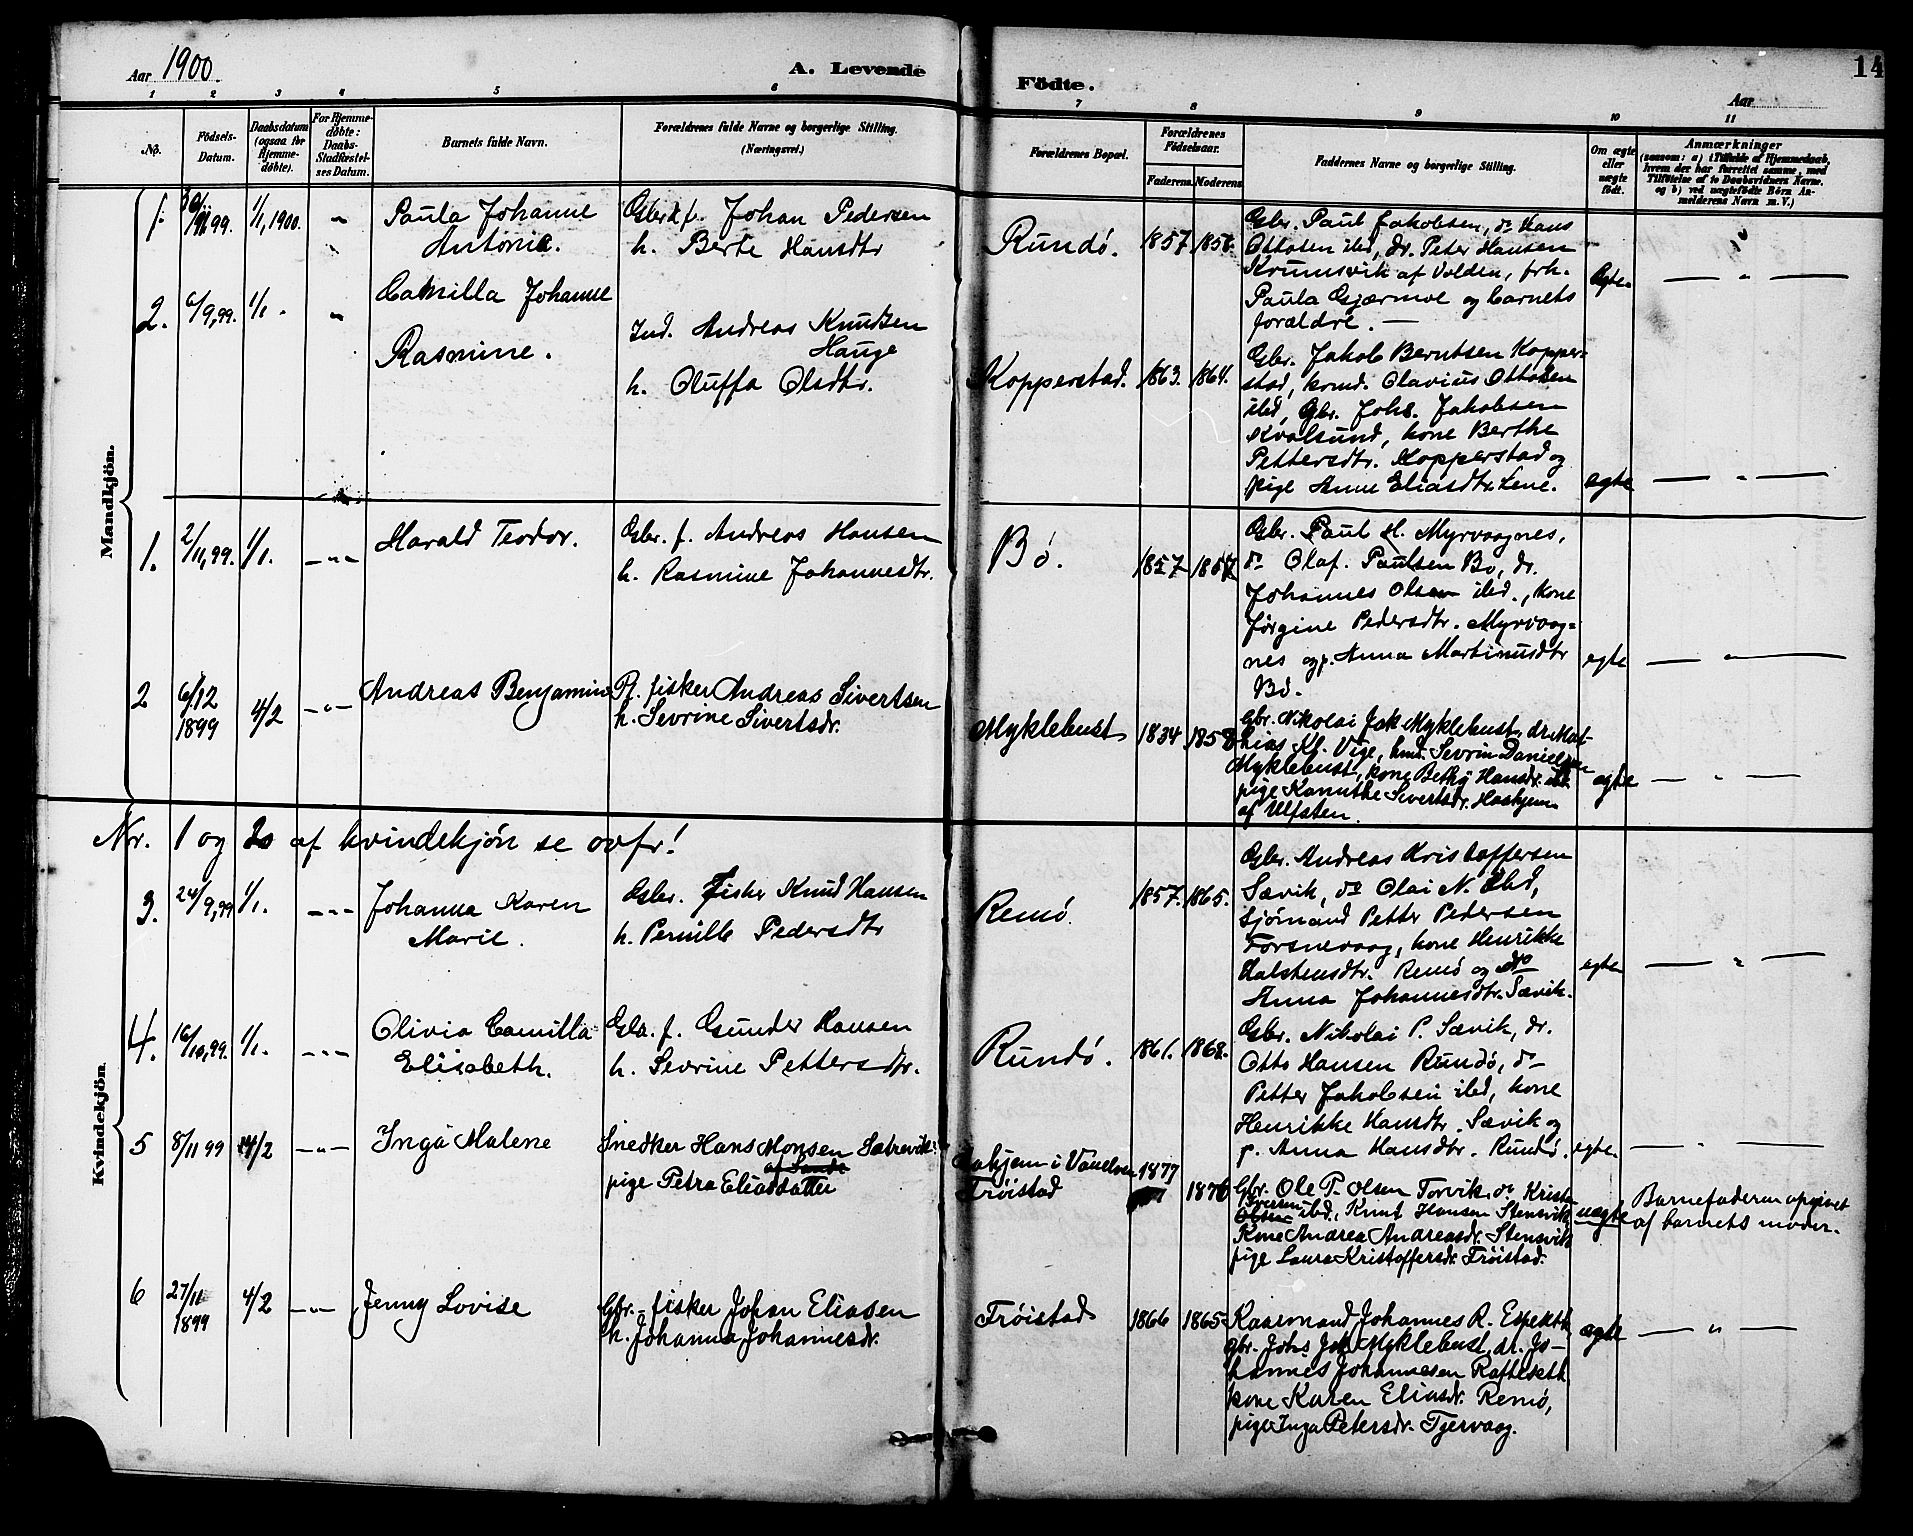 Aar 1900.
A. Levende
Födte.
Aar
14
1 2 3 4 5 6 7 8 9 10 11
No.
Födsels-
Datum.
Daabsdatum
(ogsaa for
Hjemme-
döbte).
For Hjemme-
döbte:
Daabs-
Stadfæstel-
ses Datum.
Barnets fulde Navn.
Forældrenes fulde Navne og borgerlige Stilling.
(Næringsvei.)
Forældrenes Bopæl.
Forældrenes
Födselsaar.
Faderens. Moderens.
Faddernes Navne og borgerlige Stilling.
Om ægte
eller
uægte
födt.
Anmærkninger
(saasom: a) i Tilfælde af Hjemmedaab,
hvem der har forrettet samme, med
Tilföielse af to Daabsvidners Navne,
og b) ved uægtefödte Börn An-
melderens Navn m. V.)
Mandkjön.
1. 99. 1/1, 1900. "
Paula Johanne
Antonie.
Gbr. f. Johan Pedersen
h. Berte Hansdtr
Rundö. 1857. 1856.
Gbr. Paul Jakobsen, do Hans
Ottosen ibd, dr. Peter Hansen
Krumsvik af Volden, frk.
Paula Gjærmoe og barnets
forældre. —
Ægte — " —
2. 6/9,99. 1/1. "
Camilla Johanne
Rasmine.
Ind. Andreas Knudsen
Hauge
h. Oluffa Olsdtr.
Kopperstad. 1863. 1864.
Gbr. Jakob Berntsen Kopper-
stad, kmd. Olavius Ottosen
ibd, Gbr. Johs. Jakobsen
Kvalsund, kone Berthe
Pettersdtr. Kopperstad og
pige Anne Eliasdtr. Lene.
ægte — " —
1. 2/11,99. 1/1. — " —
Harald Teodor.
Gbr. f. Andreas Hansen
h. Rasmine Johannesdtr.
Bö. 1857 1857
Gbr. Paul H. Myrvaagnes,
do Olaf. Paulsen Bö, dr.
Johannes Olsen ibd., kone
Jörgine Pedersdtr. Myrvaag-
nes og p. Anna Martinusdtr
Bö.
ægte — " —
2 6/12 1899 4/2 — " —
Andreas Benjamin
Pl. fisker Andreas Sivertsen
h. Sevrine Sivertsdr.
Myklebust 1834 1858
Gbr. Nikolai Jak Myklebust, dr. Mat-
hias Kl. Vige, kmd. Sevrin Danielsen
Myklebust, kone Bethy Hansdr. ibd
pige Kanuthe Sivertsdr. Haskjem
af Ulfsten.
ægte — " —
Kvindekjön.
Nr. 1 og 2 af kvindekjön se ovfr!
3. 24/9,99 1/1. — " —
Johanna Karen
Marie.
Gbr. Fisker Knud Hansen
h. Pernille Pedersdtr
Remö. 1857. 1865.
Gbr. Andreas Kristoffersen
Sævik, do Olai N. ibd,
Sjömand Petter Pedersen
Torsnevaag, kone Henrikke
Halstensdtr. Remö og do
Anna Johannesdtr. Sævik.
ægte — " —
4. 16/10,99. 1/1. — " —
Olivia Camilla
Elisabeth.
Gbr. f. Gunder Hansen
h. Sevrine Pettersdtr.
Rundö. 1861. 1868.
Gbr. Nikolai P. Sævik, dr.
Otto Hansen Rundö, do
Petter Jakobsen ibd, kone
Henrikke Hansdtr. Sævik og
p. Anna Hansdtr. Rundö.
ægte. — " —
5 8/11 99 4/2 — " —
Inga Malene
Snedker Hans Monsen Sætrevik
af Sande
pige Petra Eliasdatter
i Vanelven
Tröistad
1877
1876
Gbr. Ole P. Olsen Torvik, do Kristen
Iversen
Olsen ibd, Knut Hansen Stensvik
Kone Andrea Andreasdr. Stensvik
pige Laura Kristoffersdr. Tröistad.
uægte
Barnefaderen opgivet
af barnets moder.
6 27/11 1899 4/2 — " —
Jenny Lovise
Gbr. - fisker Johan Eliasen
h. Johanna Johannesdr.
Tröistad 1866 1865
Kaarmand Johannes R. Espeseth
Gbr. Johs Jak Myklebust, dr. Jo-
hannes Johannesen Rafteseth
kone Karen Eliasdr. Remö,
pige Inga Petersdr. Tjervaag.
ægte — " —